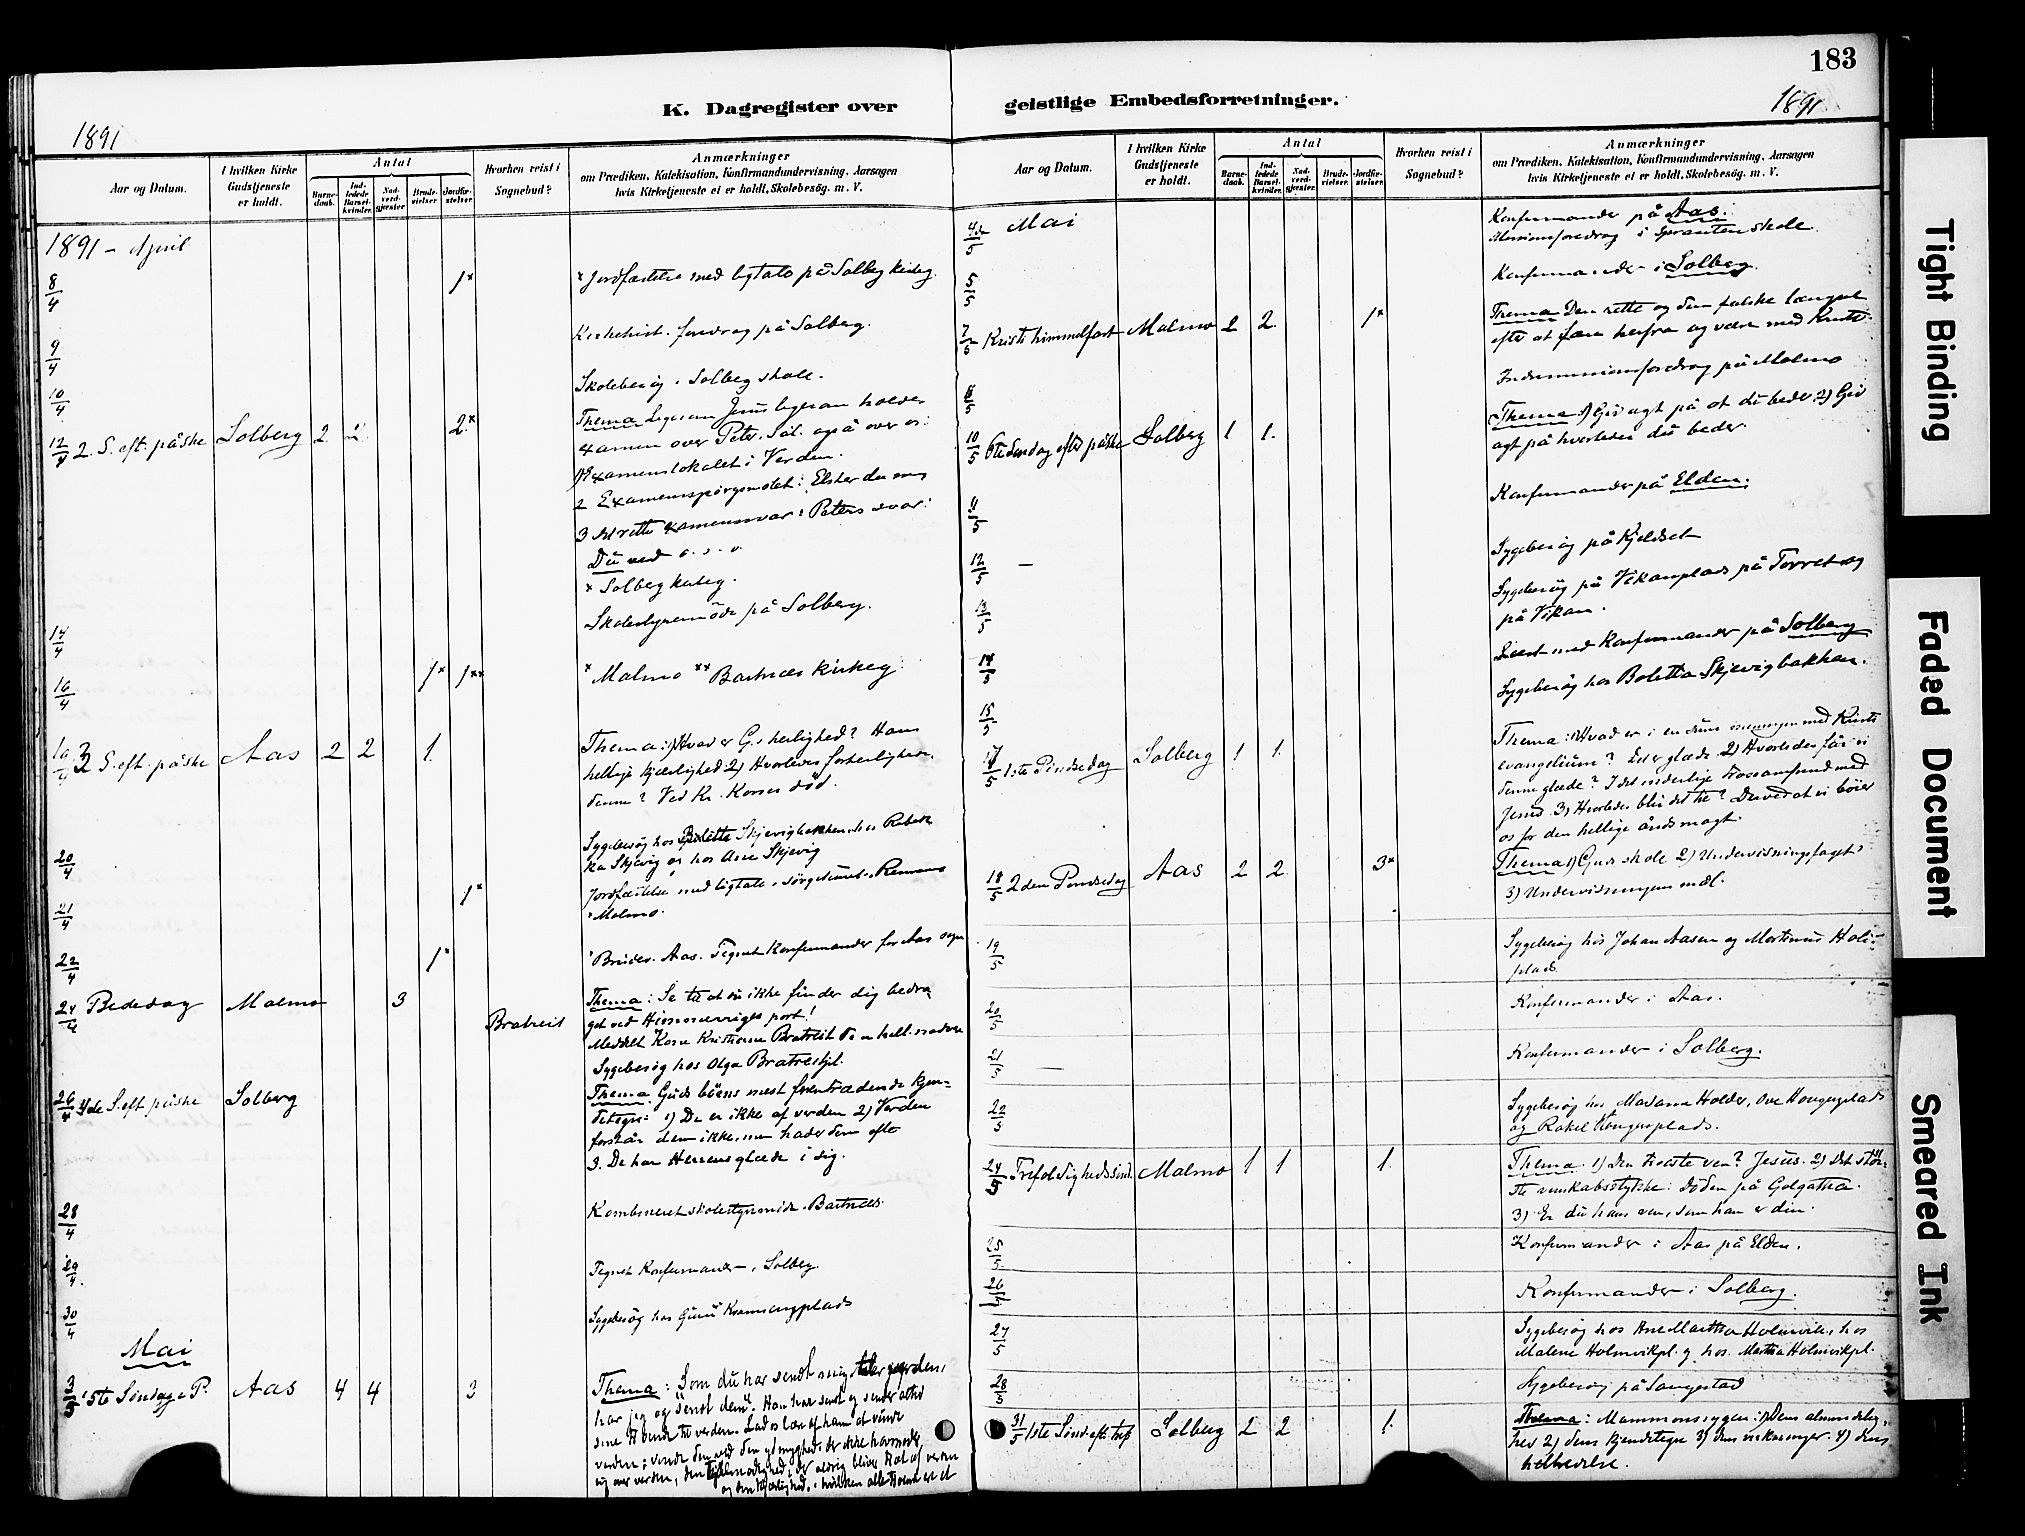 183
K. Dagregister over
geistlige Embedsforretninger.
1891
1891
Aar og Datum.
I hvilken Kirke Gudstjeneste er holdt.
Antal
Barne-daab.
Ind-ledede Barsel-kvinder.
Nad-verd-gjæster.
Brude-vielser.
Jordfæ-stelser.
Hvorhen reist i Sognebud?
Anmærkninger
om Prædiken, Katekisation, Konfirmandundervisning, Aarsagen
hvis Kirketjeneste ei er holdt, Skolebesøg. m. V.
1891 - April
8/4 1x x Jordfæstelse med ligtale på Solberg kirkeg.
9/4 Kirkehist. foredrag på Solberg.
10/4 Skolebesøg i Solberg skole.
12/4 2. S. eft. påske Solberg 2 2 2x Thema Ligesom Jesus holder
examen over Peter, også over os:
1) Examenslokalet: Verden.
2 Examensspørgsmålet: Elsker du mig
3 det rette examenssvar: Peters svar:
Du ved o. s. v.
x Solberg kirkeg.
14/4 Skolestyremöde på Solberg.
16/4 1x 1xx x Malmo xx Bartnes kirkeg.
19/4 3 S. eft. påske Aas 2 2 1. Thema: 1) Hvad er G.s herlighed? Hans
hellige kjærlighed 2) Hvorledes forherliges
denne? Ved Kr. Korses död.
20/4 Sygebesøg hos Bolette Skjevigbakken, hos Rebek-
ka Skjevig og hos Ane Skjevig
21/4 1x Jordfæstelse med ligtale i sørgehuset.
x Malmo.
22/4 1x x Brudev. Aas. Tegnet konfirmander for Aas sogn
24/4 Bededag Malmo 3 Thema: Se til at du ikke finder dig bedra-
get ved Himmerriges port!
Bratreit Meddelt Kristianna Bratreit den hell. nadvere
Sygebesøg hos Olga Bratreitpl.
26/4 4de S. eft påske Solberg Thema Guds börns mest fremtrædende kjen-
detegn: 1) De er ikke af verden 2) Verden
forstår dem ikke, men hader dem ofte
3. De har Herrens glæde i sig.
28/4 Kombineret skolestyremöde. Bartnes
29/4 Tegnet Konfirmander i Solberg.
30/4 Sygebesøg hos Guru
Mai
3/5 5te Söndag e. P. Aas 4 4 3 Thema: Som du har sendt mig til verden,
har jeg og sendt dem. Han har sendt og sender altid
sine til verden. Lad os lære af ham at vinde
verden: vinde den ved den ydmyghed, der ikke hovmoder
sig over verden, den tålmodighed, der aldrig bliver træt af verden
og den kjærlighed, i hvilken alle
Aar og Datum.
I hvilken Kirke Gudstjeneste er holdt.
Antal
Barne-daab.
Ind-ledede Barsel-kvinder.
Nad-verd-gjæster.
Brude-vielser.
Jordfæ-stelser.
Hvorhen reist i Sognebud?
Anmærkninger
om Prædiken, Katekisation, Konfirmandundervisning, Aarsagen
hvis Kirketjeneste ei er holdt, Skolebesøg. m. V.
4de/5 Mai Konfirmander på Aas.
Missionsforedrag i skole.
5/5 Konfirmander i Solberg.
7/5 Kristi himmelfart Malmo 2 2. 1x Thema Den rette og den falske længsel
efter at fare herfra og være med Kristo.
8/5 Indremissionsforedrag på Malmo
10/5 6te Söndag efter påske Solberg 1 1. Thema: 1) Giv agt på at du beder. 2) Giv
agt på hvorledes du beder.
11/5 Konfirmander på Elden.
12/5 — Sygebesøg på Kjeldset
13/5 Sygebesøg på Vikanplads på Torret og
på Vikan.
14/5 Læst med konfirmander på Solberg
15/5 Sygebesøg hos Boletta Skjevigbakken.
17/5 1ste Pindsedag Solberg 1 1. Thema: 1) Hvad er i en sum meningen med Kristi
evangelium? Det er glæde 2) Hvorledes får vi
denne glæde? I det inderlige trossamfund med
Jesus. 3) Hvorledes blir det til? Derved at vi böier
os for den hellige ånds magt.
18/5 2den Pindsedag Aas 2 2. 3x Thema 1) Guds skole 2) Undervisningsfaget
3) Undervisningens mål.
19/5 Sygebesøg hos Johan Aasen og Mortinus Holi-
plads
20/5 Konfirmander i Aas.
21/5 — Konfirmander i Solberg.
22/5 Sygebesøg hos Madame Holder, Ove Haugenplads
og Rakel Haugenplads.
24/5 Trefoldighedssönd. Malmo 1 1 1. Thema. 1) Den bedste ven? Jesus. 2) Det stör-
ste venskabsstykke: Döden på Golgatha.
3) Er du hans ven, som han er din.
25/5 Konfirmander i Aas på Elden.
26/5 Konfirmander i Solberg.
27/5 Sygebesøg hos Ane Martha Holmvik, hos
Malene Holmvikpl. og hos Martha Holmvikpl.
28/5 Sygebesøg på Sangestad
31/5 1ste Sönd. eft. tref Solberg 2 2 1. Thema: Mammonssygen: 1) Dens almindelig-
hed 2) dens kjendetegn 3) dens virkninger. 4) dens
helbredelse.
Tight Binding
Faded Document
Smeared Ink